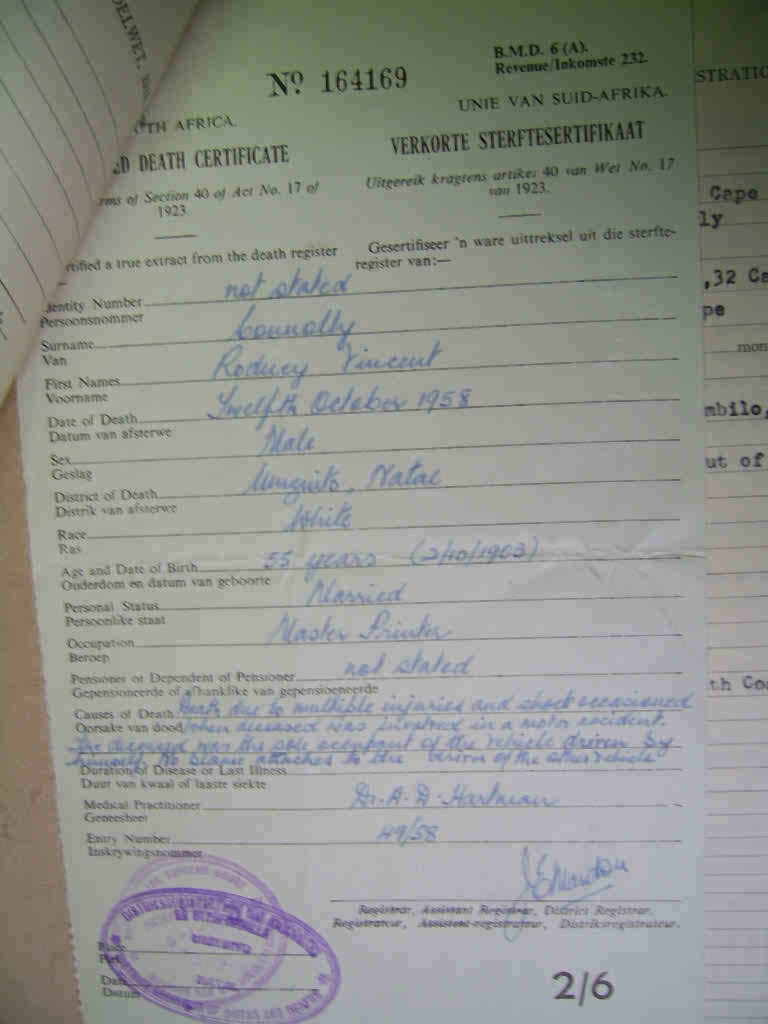 DELWET.
B.M.D. 6 (A).
Revenue/Inkomste 232.
No. 164169
TH AFRICA.
UNIE VAN SUID-AFRIKA.
ED DEATH CERTIFICATE
VERKORTE STERFTESERTIFIKAAT
rms of Section 40 of Act No. 17 of
1923.
Uitgereik kragtens artikel 40 van Wet No. 17
van 1923.
rtified a true extract from the death register
Gesertifiseer 'n ware uittreksel uit die sterfte-
register van:—
Identity Number not stated
Persoonsnommer
Surname Connolly
Van
First Names Rodney Vincent
Voorname
Date of Death Twelfth October 1958
Datum van afsterwe
Sex Male
Geslag
District of Death Umzinto, Natal
Distrik van afsterwe
Race White
Ras
Age and Date of Birth 55 years (2/10/1903)
Ouderdom en datum van geboorte
Personal Status Married
Persoonlike staat
Occupation Master Printer
Beroep
Pensioner or Dependent of Pensioner not stated
Gepensioneerde of afhanklike van gepensioeneerde
Causes of Death Death due to multiple injuries and shock occasioned
Oorsake van dood when deceased was involved in a motor accident.
The deceased was the sole occupant of the vehicle driven by
himself. No blame attaches to the driver of the other vehicle
Duration of Disease or Last Illness
Duur van kwaal of laaste siekte
Medical Practitioner Dr. A. D. Hartman
Geneesheer
Entry Number 49/58
Inskrywingsnommer
Registrar, Assistant Registrar, District Registrar.
Registrateur, Assistent-registrateur, Distriksregistrateur.
Date
Datum
OF BIRTHS AND DEATHS
2/6
STRATIO
Cape
ly
,32 Ca
pe
mon
mbilo,
ut of
th Co